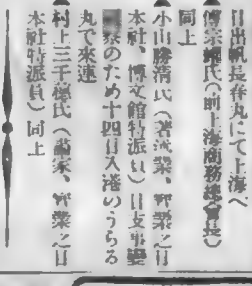 日出帆長春丸にて上海へ
傅宗耀氏（前上海商務總會長）
同上
小山勝清氏（著述業、實業之日
本社、博文館特派員）日支事變
察のため十四日入港のうらる
丸で來連
村上三千穂氏（畫家、實業之日
本社特派員）同上